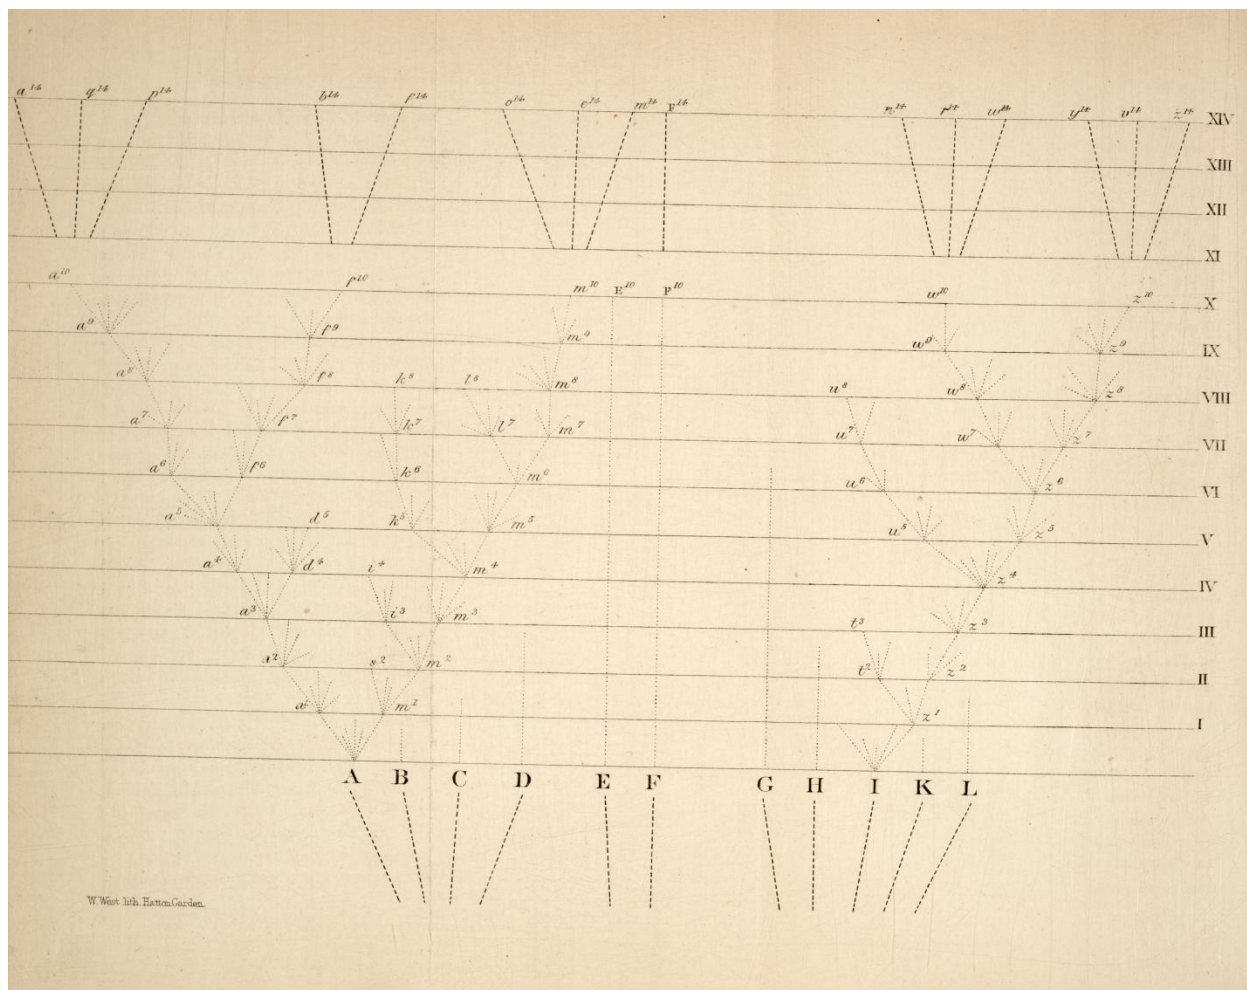 a¹⁴ q¹⁴ p¹⁴ b¹⁴ f¹⁴ o¹⁴ e¹⁴ m¹⁴ F¹⁴ n¹⁴ r¹⁴ w¹⁴ y¹⁴ v¹⁴ z¹⁴ XIV
XIII
XII
XI
a¹⁰ f¹⁰ m¹⁰ E¹⁰ F¹⁰ w¹⁰ z¹⁰ X
a⁹ f⁹ m⁹ w⁹ z⁹ IX
a⁸ f⁸ k⁸ l⁸ m⁸ u⁸ w⁸ z⁸ VIII
a⁷ f⁷ k⁷ l⁷ m⁷ u⁷ w⁷ z⁷ VII
a⁶ f⁶ k⁶ m⁶ u⁶ z⁶ VI
a⁵ d⁵ k⁵ m⁵ u⁵ z⁵ V
a⁴ d⁴ i⁴ m⁴ z⁴ IV
a³ i³ m³ t³ z³ III
a² s² m² t² z² II
a¹ m¹ z¹ I
A B C D E F G H I K L
W. West lith. Hatton Garden.